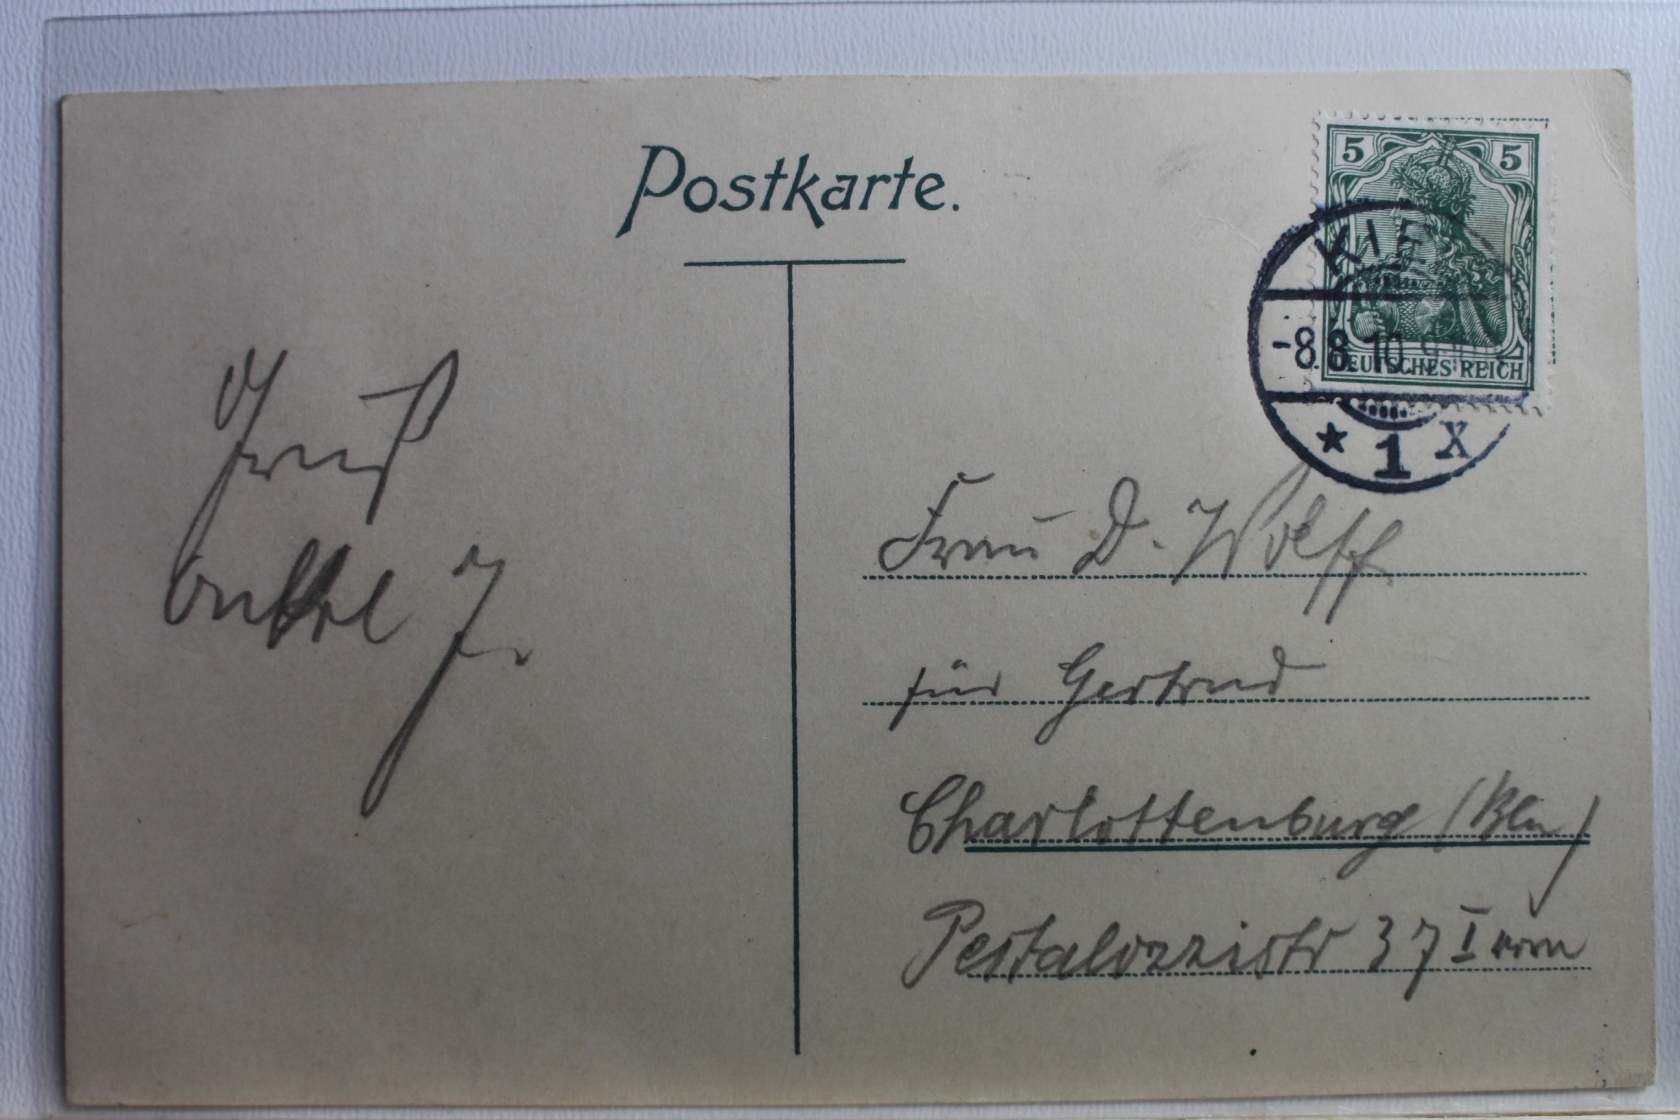 Postkarte.
5 5
KIEL
-8.8.10
DEUTSCHES REICH
* 1 X
Gruß
Onkel J.
Frau D. Wolff
für Gertrud
Charlottenburg (Bln)
Pestalozzistr 37 I vorn